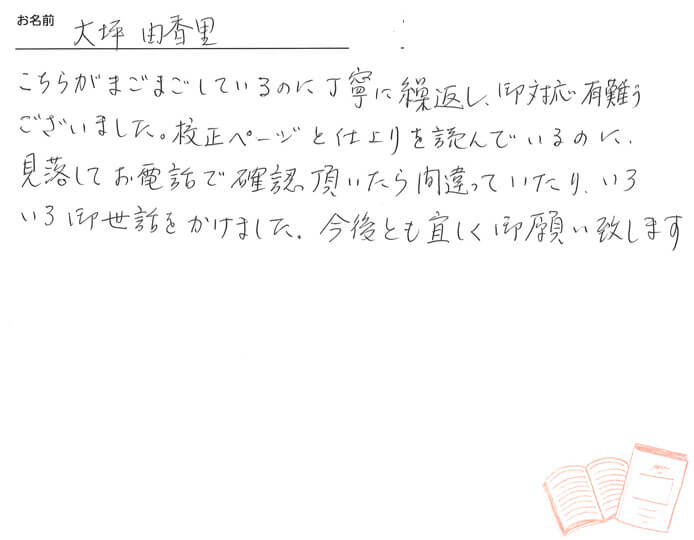 お名前 大坪 由香里
こちらがまごまごしているのに丁寧に繰返し、御対応有難う
ございました。校正ページと仕上りを読んでいるのに、
見落してお電話で確認頂いたら間違っていたり、いろ
いろ御世話をかけました。今後とも宜しく御願い致します